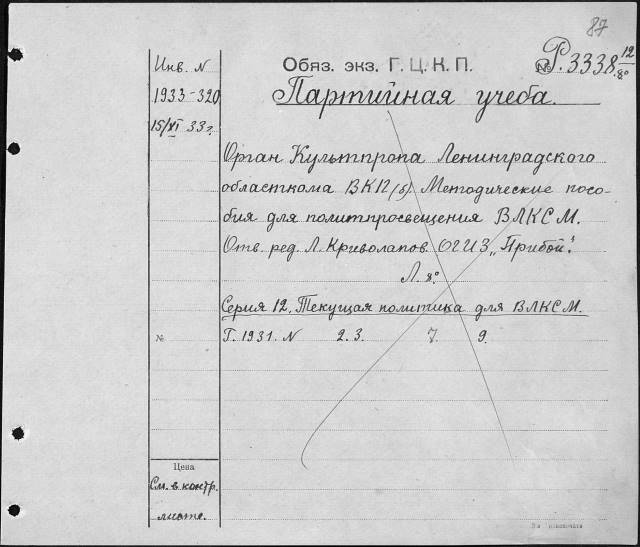 87
Инв. N
Обяз. экз. Г. Ц. К. П.
№ Р.3338 12/8°
1933-320
Партийная учеба.
15/XI 33 г.
Орган Культпропа Ленинградского
областкома ВКП(б). Методические посо-
бия для политпросвещения ВЛКСМ.
Отв. ред. Л. Криволапов. ОГИЗ „Прибой".
Л. 8°.
Серия 12. Текущая политика для ВЛКСМ.
№ Г. 1931. N 2. 3. 7. 9.
Цена
См. в контр.
листе.